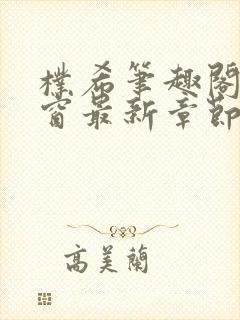 樸希筆趣閣
窗最新章節
高美蘭